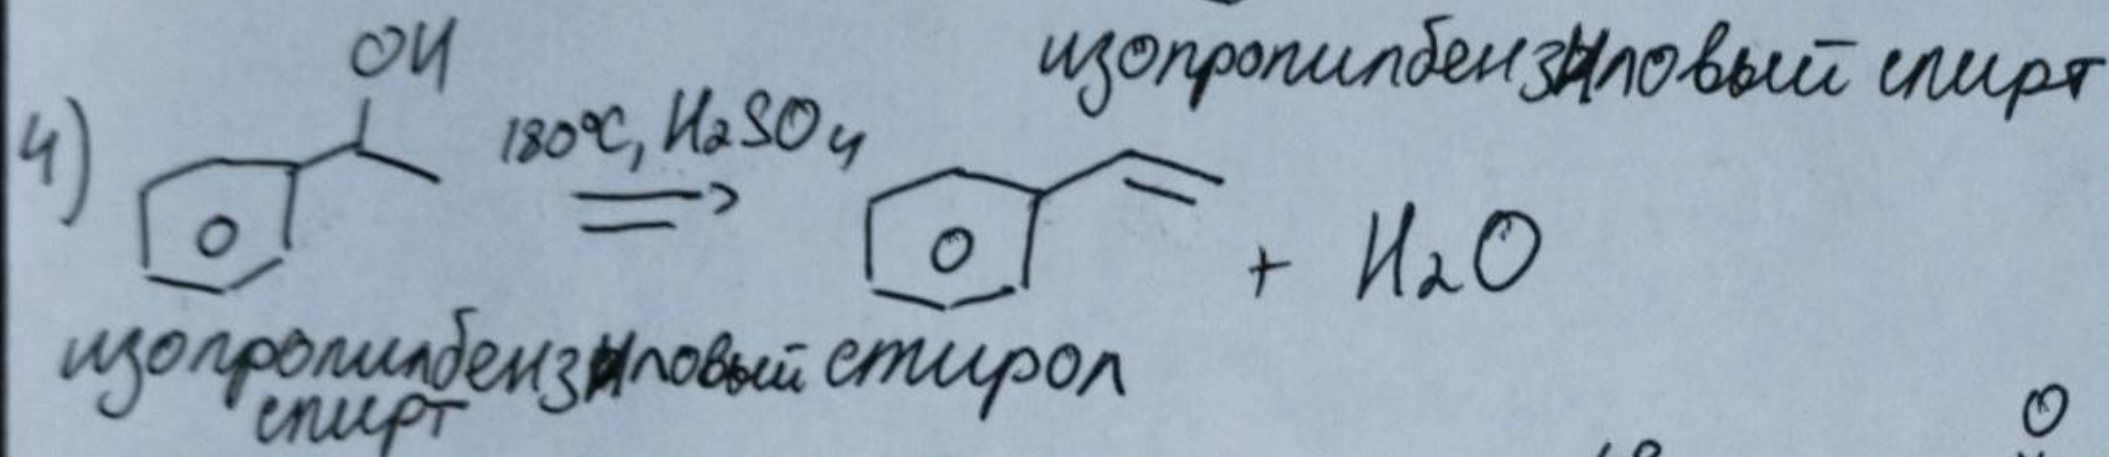 изопропилбензиловый спирт
OH
4)
180°C, H2SO4
+ H2O
изопропилбензиловый стирол
спирт
O